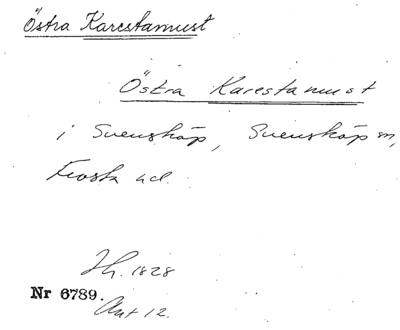 Östra Karestamust
Östra Karestamust
i Svensköp, Svensköp sn,
Frosta hd.
Jh. 1828
Nr 6789.
Akt 12.